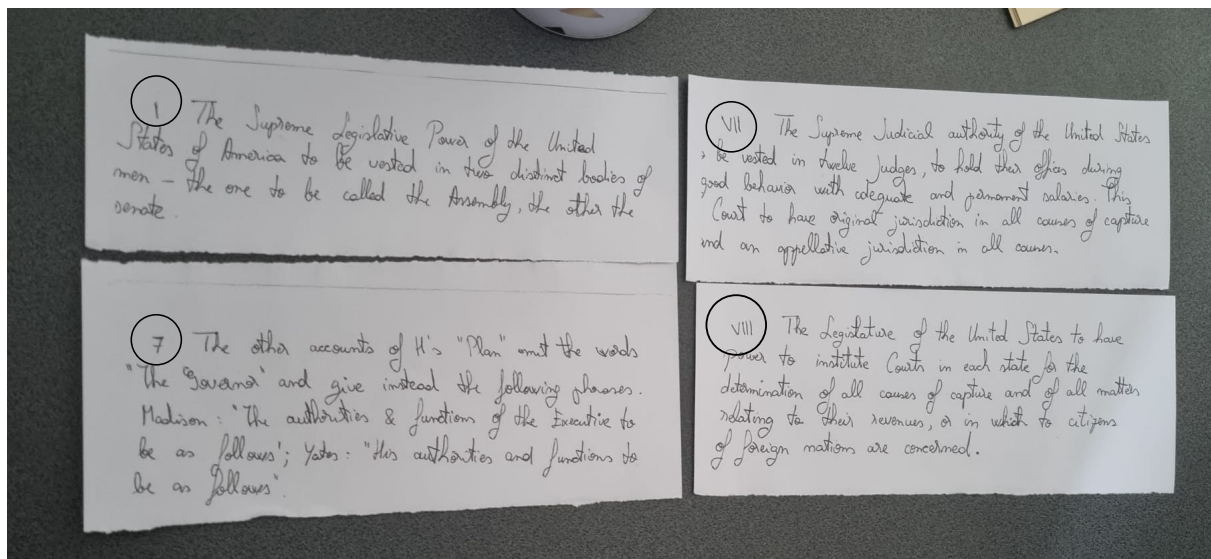 I The Supreme Legislative Power of the United
States of America to be vested in two distinct bodies of
men – the one to be called the Assembly, the other the
senate.
7 The other accounts of H's "Plan" omit the words
"The Governor" and give instead the following phrases.
Madison: "The authorities & functions of the Executive to
be as follows"; Yates: "His authorities and functions to
be as follows".
VII The Supreme Judicial authority of the United States
be vested in twelve Judges, to hold their offices during
good behavior with adequate and permanent salaries. This
Court to have original jurisdiction in all causes of capture
and an appellative jurisdiction in all causes.
VIII The Legislature of the United States to have
power to institute Courts in each state for the
determination of all causes of capture and of all matters
relating to their revenues, or in which to citizens
of foreign nations are concerned.